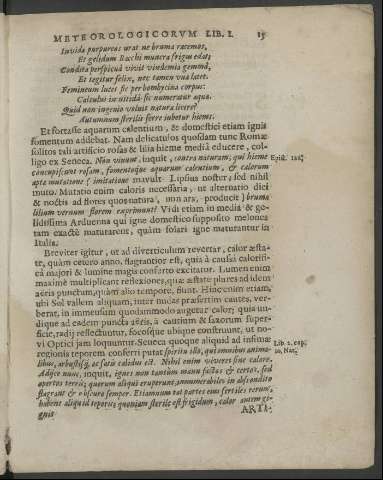 METEOROLOGICORVM LIB. I. 15
Invida purpureos urat ne bruma racemos,
Et gelidum Bacchi munera frigus edat;
Condita perspicuâ vivit vindemia gemmâ,
Et tegitur felix, nec tamen uva latet.
Femineum lucet sic per bombycina corpus:
Calculus in nitidâ sic numeratur aquâ.
Quid non ingenio voluit natura licere?
Autumnum sterilis ferre jubetur hiems.
Et fortasse aquarum calentium, & domestici etiam ignis
fomentum addebat. Nam delicatulos quosdam tunc Romæ
solitos tali artificio rosas & lilia hieme mediâ educere, col-
ligo ex Seneca. Non vivunt, inquit, contra naturam, qui hieme
concupiscunt rosam, fomentoque aquarum calentium, & calorum
apta mutatione ( imitatione mavult Lipsius noster, sed nihil
muto. Mutatio enim caloris necessaria, ut alternatio diei
& noctis ad flores quos natura, non ars, producit ) bruma
lilium vernum florem exprimunt? Vidi etiam in media & ge-
lidissima Arduenna qui igne domestico supposito melones
tam exactè maturarent, quàm solari igne maturantur in
Italia.
Epist. 122.
Breviter igitur, ut ad diverticulum revertar, calor æsta-
te, quàm cetero anno, flagrantior est, quià à causâ calorifi-
câ majori & lumine magis conferto excitatur. Lumen enim
maximè multiplicant reflexiones, quæ æstate plures ad idem
aëris punctum, quàm alio tempore, fiunt. Hinc enim etiam,
ubi Sol vallem aliquam, inter nudas præsertim cautes, ver-
berat, in immensum quodammodo augetur calor; quia un-
dique ad eadem puncta aëris, à cautium & saxorum super-
ficie, radij reflectuntur, focosque ubique construunt, ut no-
vi Optici jam loquuntur. Seneca quoque aliquid ad infimæ
regionis teporem conferri putat spiritu illo, qui omnibus anima-
libus, arbustisq; ac satis calidus est. Nihil enim viveret sine calore.
Adijce nunc, inquit, ignes non tantùm manu factos & certos, sed
opertos terris; quorum aliqui eruperunt, innumerabiles in abscondito
flagrant & obscuro semper. Etiamnum tot partes ejus fertiles rerum,
habent aliquid teporis; quoniam sterile est frigidum, calor autem gi-
gnit.
Lib. 2. cap.
10. Nat.
ARTI-